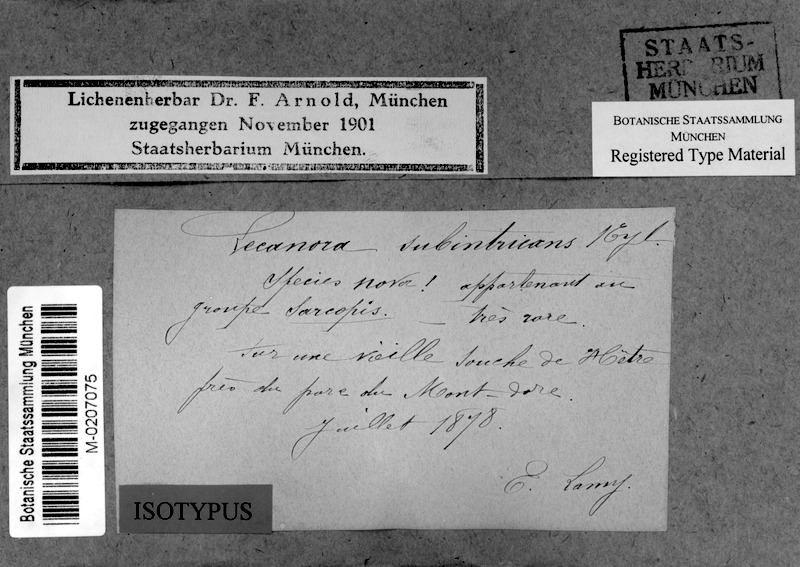 STAATS-
HERBARIUM
MÜNCHEN
Lichenenherbar Dr. F. Arnold, München
zugegangen November 1901
Staatsherbarium München.
BOTANISCHE STAATSSAMMLUNG
MÜNCHEN
Registered Type Material
Lecanora subintricans Nyl.
Species nova! appartenant au
groupe Sarcopis. — très rare.
Sur une vieille souche de Hêtre
près du parc du Mont-dore.
Juillet 1878.
E. Lamy.
ISOTYPUS
Botanische Staatssammlung München
M-0207075